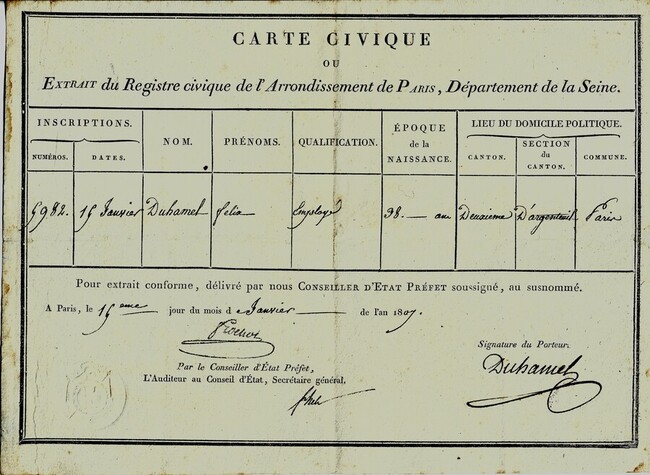 CARTE CIVIQUE
OU
EXTRAIT du Registre civique de l'Arrondissement de PARIS, Département de la Seine.
INSCRIPTIONS.
NUMÉROS.
DATES.
NOM.
PRÉNOMS.
QUALIFICATION.
ÉPOQUE
de la
NAISSANCE.
LIEU DU DOMICILE POLITIQUE.
CANTON.
SECTION
du
CANTON.
COMMUNE.
5982. 15 Janvier Duhamel felix Employé 38. — ans Deuxieme D'argenteuil Paris
Pour extrait conforme, délivré par nous CONSEILLER D'ETAT PRÉFET soussigné, au susnommé.
A Paris, le 15eme jour du mois de Janvier de l'an 1807.
Frochot
Signature du Porteur.
Duhamel
Par le Conseiller d'État Préfet,
L'Auditeur au Conseil d'État, Secrétaire général.